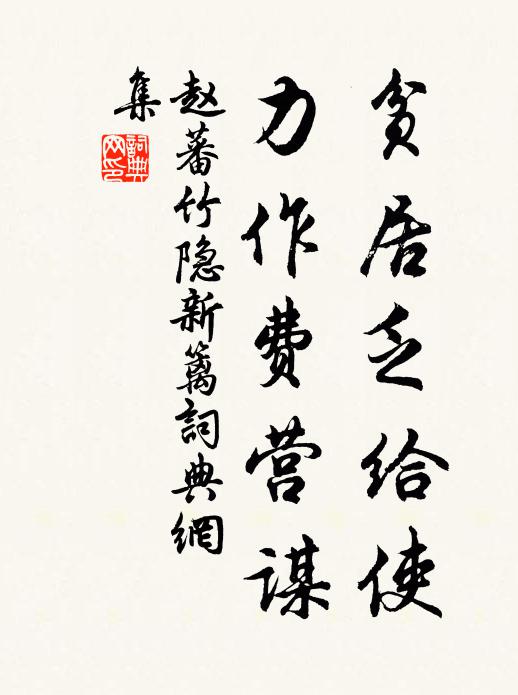 贫居乏给使
力作费营谋
赵蕃竹隐新篱詞典網
集
詞典
网印